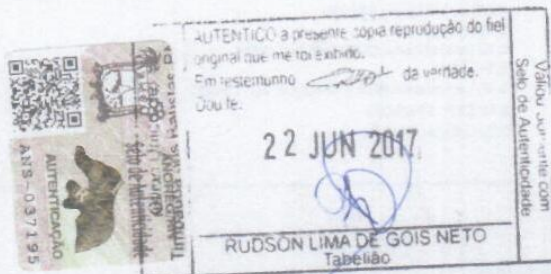 AUTENTICO a presente cópia reprodução do fiel
original que me foi exibido.
Em testemunho da verdade.
Dou fé.
22 JUN 2017
RUDSON LIMA DE GOIS NETO
Tabelião
Selo de Autenticidade
AUTENTICAÇÃO
ANS-037195